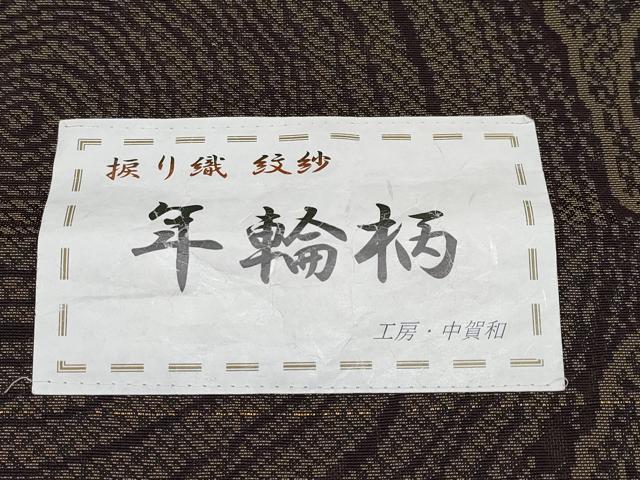 捩り織 紋紗
年輪柄
工房・中賀和